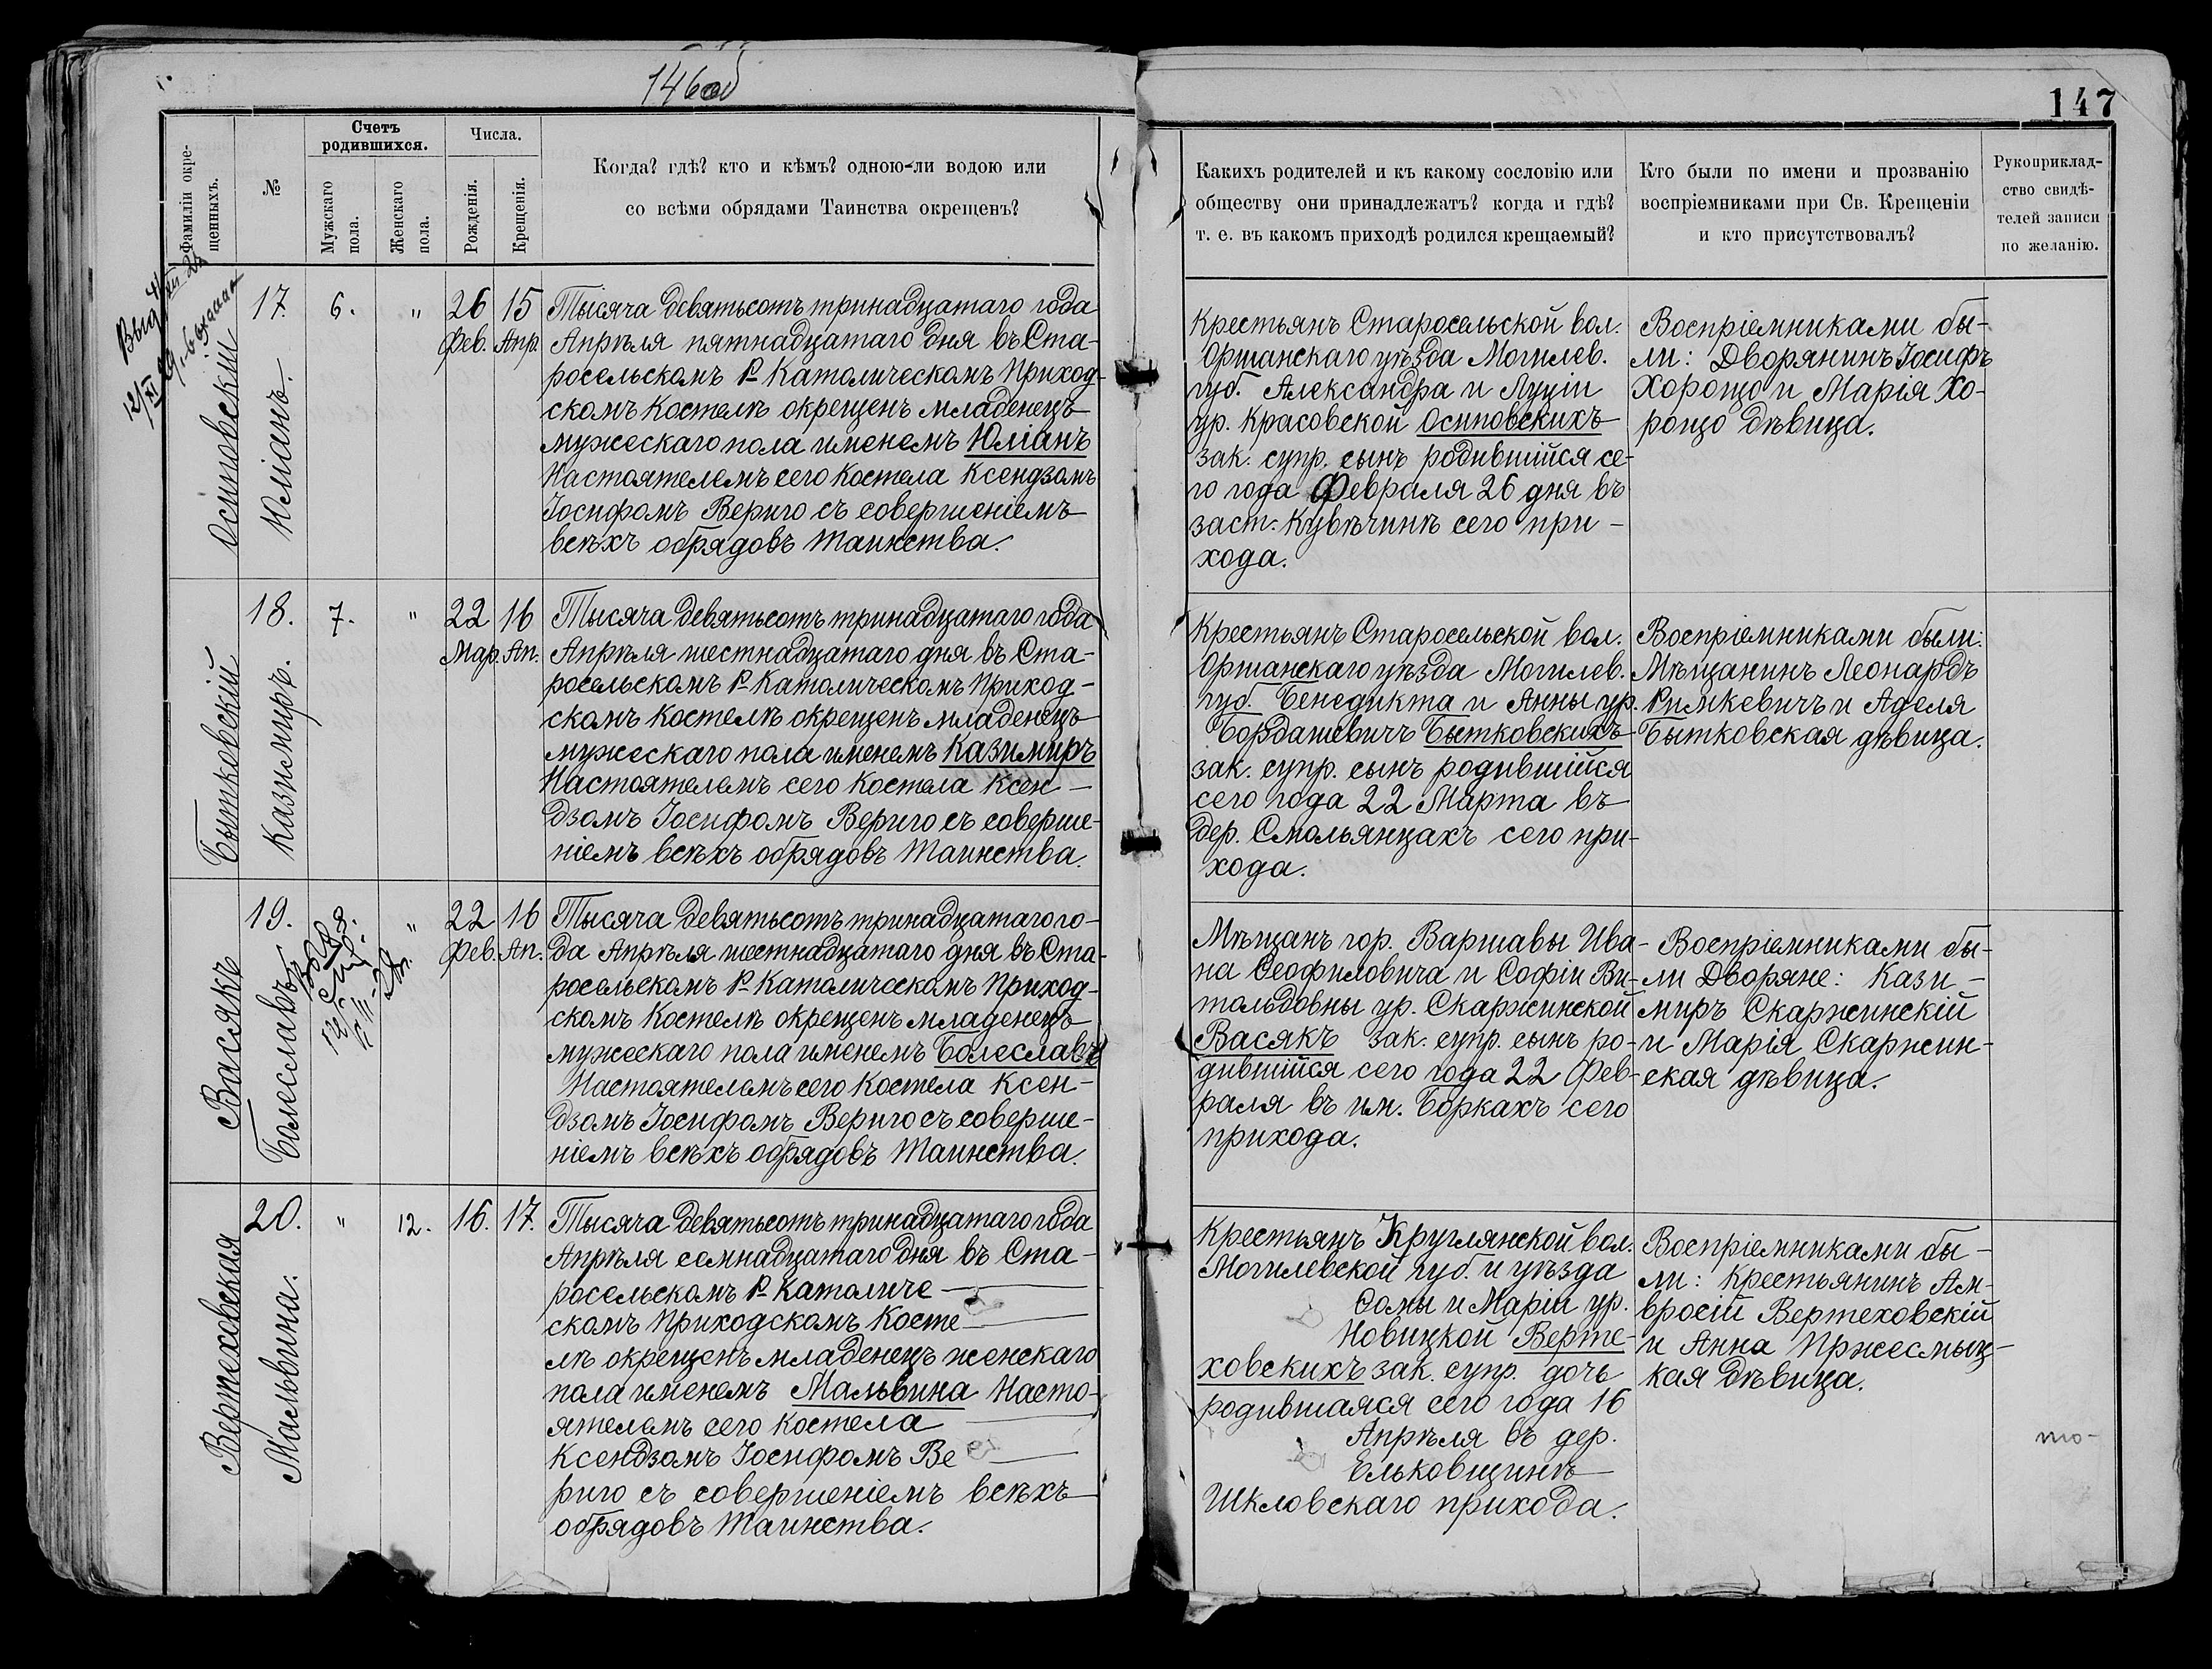 146об
147
Фамиліи окре-
щенныхъ.
№
Счетъ
родившихся.
Мужскаго
пола.
Женскаго
пола.
Числа.
Рожденія.
Крещенія.
Когда? гдѣ? кто и кѣмъ? одною-ли водою или
со всѣми обрядами Таинства окрещенъ?
Какихъ родителей и къ какому сословію или
обществу они принадлежатъ? когда и гдѣ?
т. е. въ какомъ приходѣ родился крещаемый?
Кто были по имени и прозванію
воспріемниками при Св. Крещеніи
и кто присутствовалъ?
Рукоприклад-
ство свидѣ-
телей записи
по желанію.
Осиповскій
Юліанъ.
17.
6.
"
26
Фев.
15
Апр.
Тысяча девятьсотъ тринадцатаго года
Апрѣля пятнадцатаго дня въ Ста-
росельскомъ Р-Католическомъ Приход-
скомъ Костелѣ окрещенъ младенецъ
мужескаго пола именемъ Юліанъ
Настоятелемъ сего Костела Ксендзомъ
Іосифомъ Вериго съ совершеніемъ
всѣхъ обрядовъ Таинства.
Крестьянъ Старосельской вол.
Оршанскаго уѣзда Могилев.
губ. Александра и Луціи
ур. Красовской Осиповскихъ
зак. супр. сынъ родившійся се-
го года Февраля 26 дня въ
заст. Кувѣчинѣ сего при-
хода.
Воспріемниками бы-
ли: Дворянинъ Іосифъ
Хорощо и Марія Хо-
рощо дѣвица.
Бытковскій
Казимиръ.
18.
7.
"
22
Мар.
16
Ап.
Тысяча девятьсотъ тринадцатаго года
Апрѣля шестнадцатаго дня въ Ста-
росельскомъ Р-Католическомъ Приход-
скомъ Костелѣ окрещенъ младенецъ
мужескаго пола именемъ Казимиръ
Настоятелемъ сего Костела Ксен-
дзомъ Іосифомъ Вериго съ соверше-
ніемъ всѣхъ обрядовъ Таинства.
Крестьянъ Старосельской вол.
Оршанскаго уѣзда Могилев.
губ. Бенедикта и Анны ур.
Бордашевичъ Бытковскихъ
зак. супр. сынъ родившійся
сего года 22 Марта въ
дер. Смольянцахъ сего при-
хода.
Воспріемниками были:
Мѣщанинъ Леонардъ
Римкевичъ и Аделя
Бытковская дѣвица.
Васякъ
Болеславъ
19.
8.
"
22
Фев.
16
Ап.
Тысяча девятьсотъ тринадцатаго го-
да Апрѣля шестнадцатаго дня въ Ста-
росельскомъ Р-Католическомъ Приход-
скомъ Костелѣ окрещенъ младенецъ
мужескаго пола именемъ Болеславъ
Настоятелемъ сего Костела Ксен-
дзомъ Іосифомъ Вериго съ соверше-
ніемъ всѣхъ обрядовъ Таинства.
Мѣщанъ гор. Варшавы Ива-
на Ѳеофиловича и Софіи Ви-
тольдовны ур. Скаржинской
Васякъ зак. супр. сынъ ро-
дившійся сего года 22 Фев-
раля въ им. Боркахъ сего
прихода.
Воспріемниками бы-
ли Дворяне: Кази-
миръ Скаржинскій
и Марія Скаржин-
ская дѣвица.
Вертеховская
Мальвина.
20.
"
12.
16.
17.
Тысяча девятьсотъ тринадцатаго года
Апрѣля семнадцатаго дня въ Ста-
росельскомъ Р-Католиче-
скомъ Приходскомъ Косте-
лѣ окрещенъ младенецъ женскаго
пола именемъ Мальвина Насто-
ятелемъ сего Костела
Ксендзомъ Іосифомъ Ве-
риго съ совершеніемъ всѣхъ
обрядовъ Таинства.
Крестьянъ Круглянской вол.
Могилевской губ. и уѣзда
Ѳомы и Маріи ур.
Новицкой Верте-
ховскихъ зак. супр. дочь
родившаяся сего года 16
Апрѣля въ дер.
Ельковщинѣ
Шкловскаго прихода.
Воспріемниками бы-
ли: Крестьянинъ Ам-
вросій Вертеховскій
и Анна Пржесмыц-
кая дѣвица.